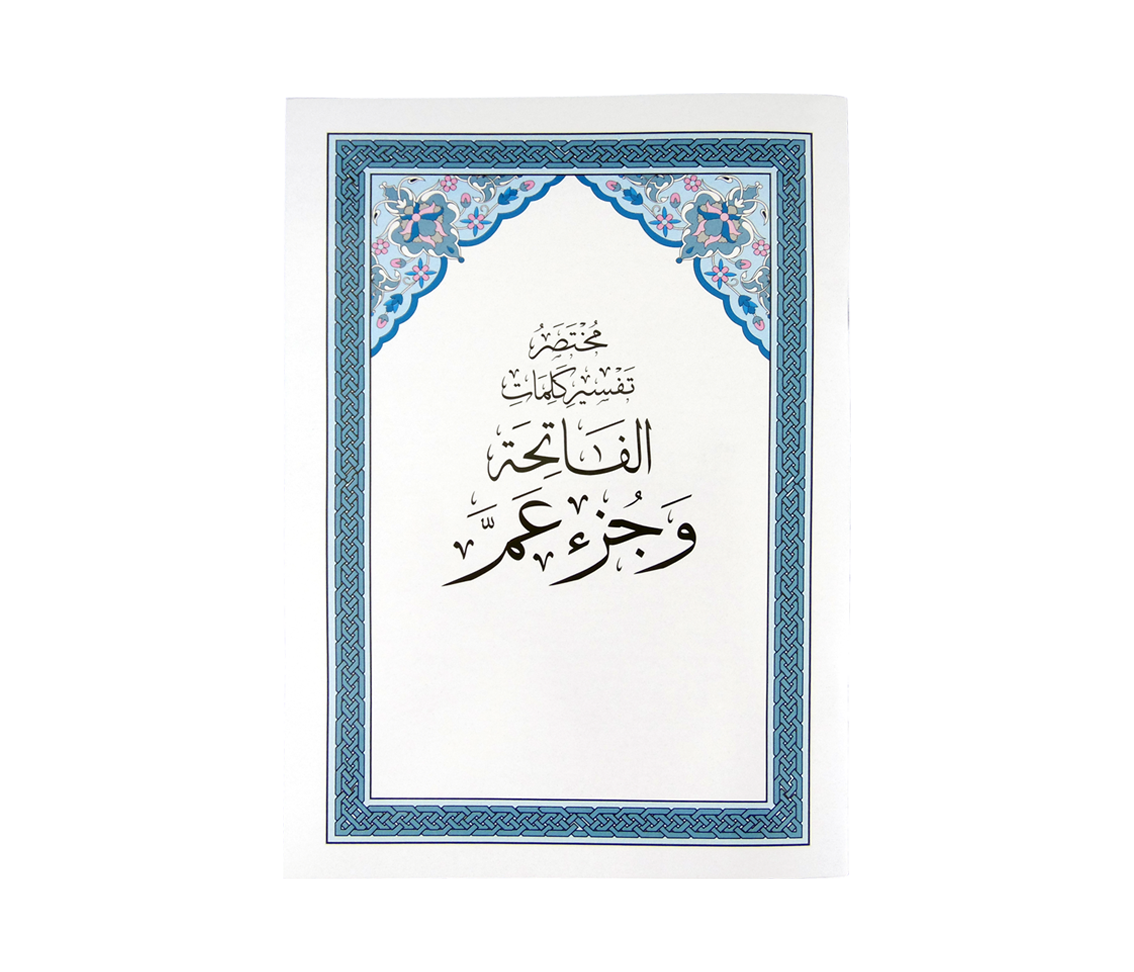 مُخْتَصَرُ
تَفْسِيرِ كَلِمَاتِ
الفَاتِحَة
وَجُزء عَمَّ